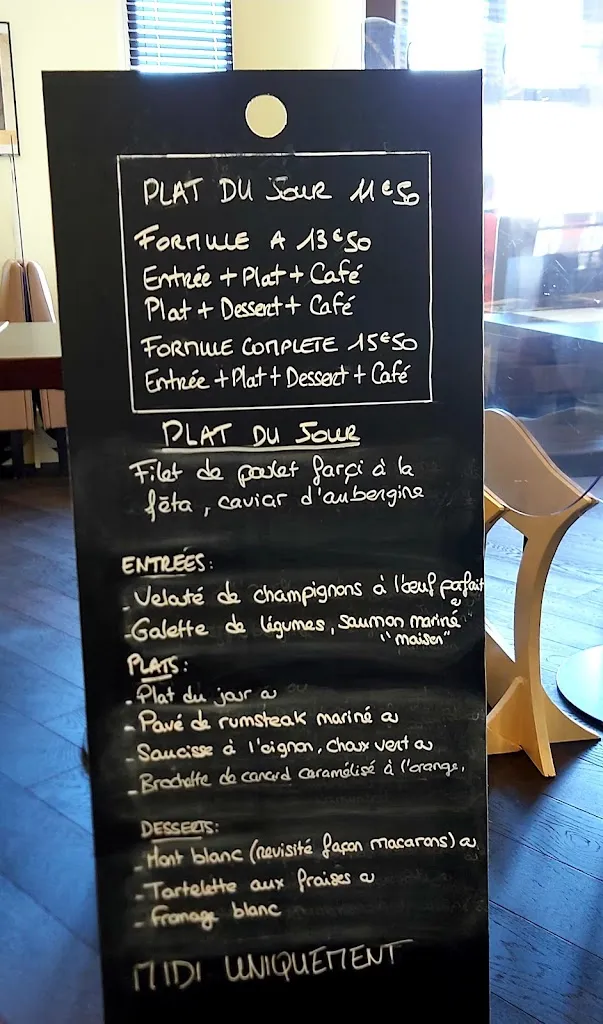 PLAT DU JOUR 11€50
FORMULE A 13€50
Entrée + Plat + Café
Plat + Dessert + Café
FORMULE COMPLETE 15€50
Entrée + Plat + Dessert + Café
PLAT DU JOUR
Filet de poulet farçi à la
fêta, caviar d'aubergine
ENTRÉES:
- Velouté de champignons à l'œuf parfait
- Galette de légumes, saumon mariné
"maison"
PLATS:
- Plat du jour
- Pavé de rumsteak mariné
- Saucisse à l'oignon, choux vert
- Brochette de canard caramélisé à l'orange,
DESSERTS:
- Mont blanc (revisité façon macarons)
- Tartelette aux fraises
- Fromage blanc
MIDI UNIQUEMENT